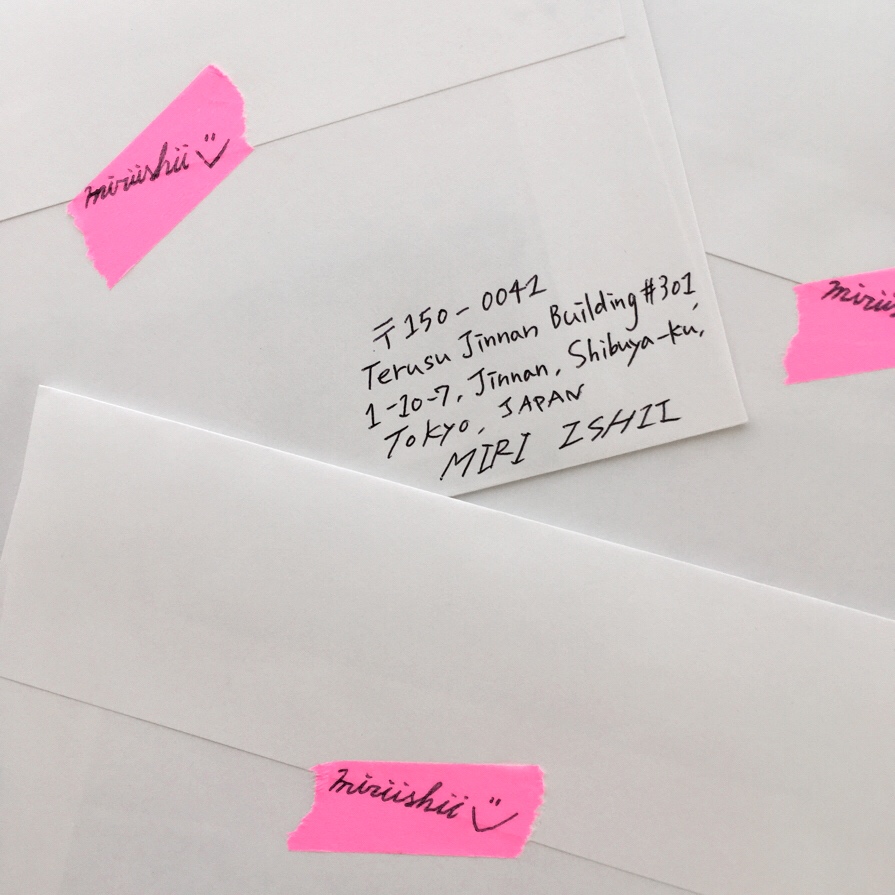 miriishii
〒150-0041
Terusu Jinnan Building #301
1-10-7, Jinnan, Shibuya-ku,
Tokyo, JAPAN
MIRI ISHII
miriis
miriishii